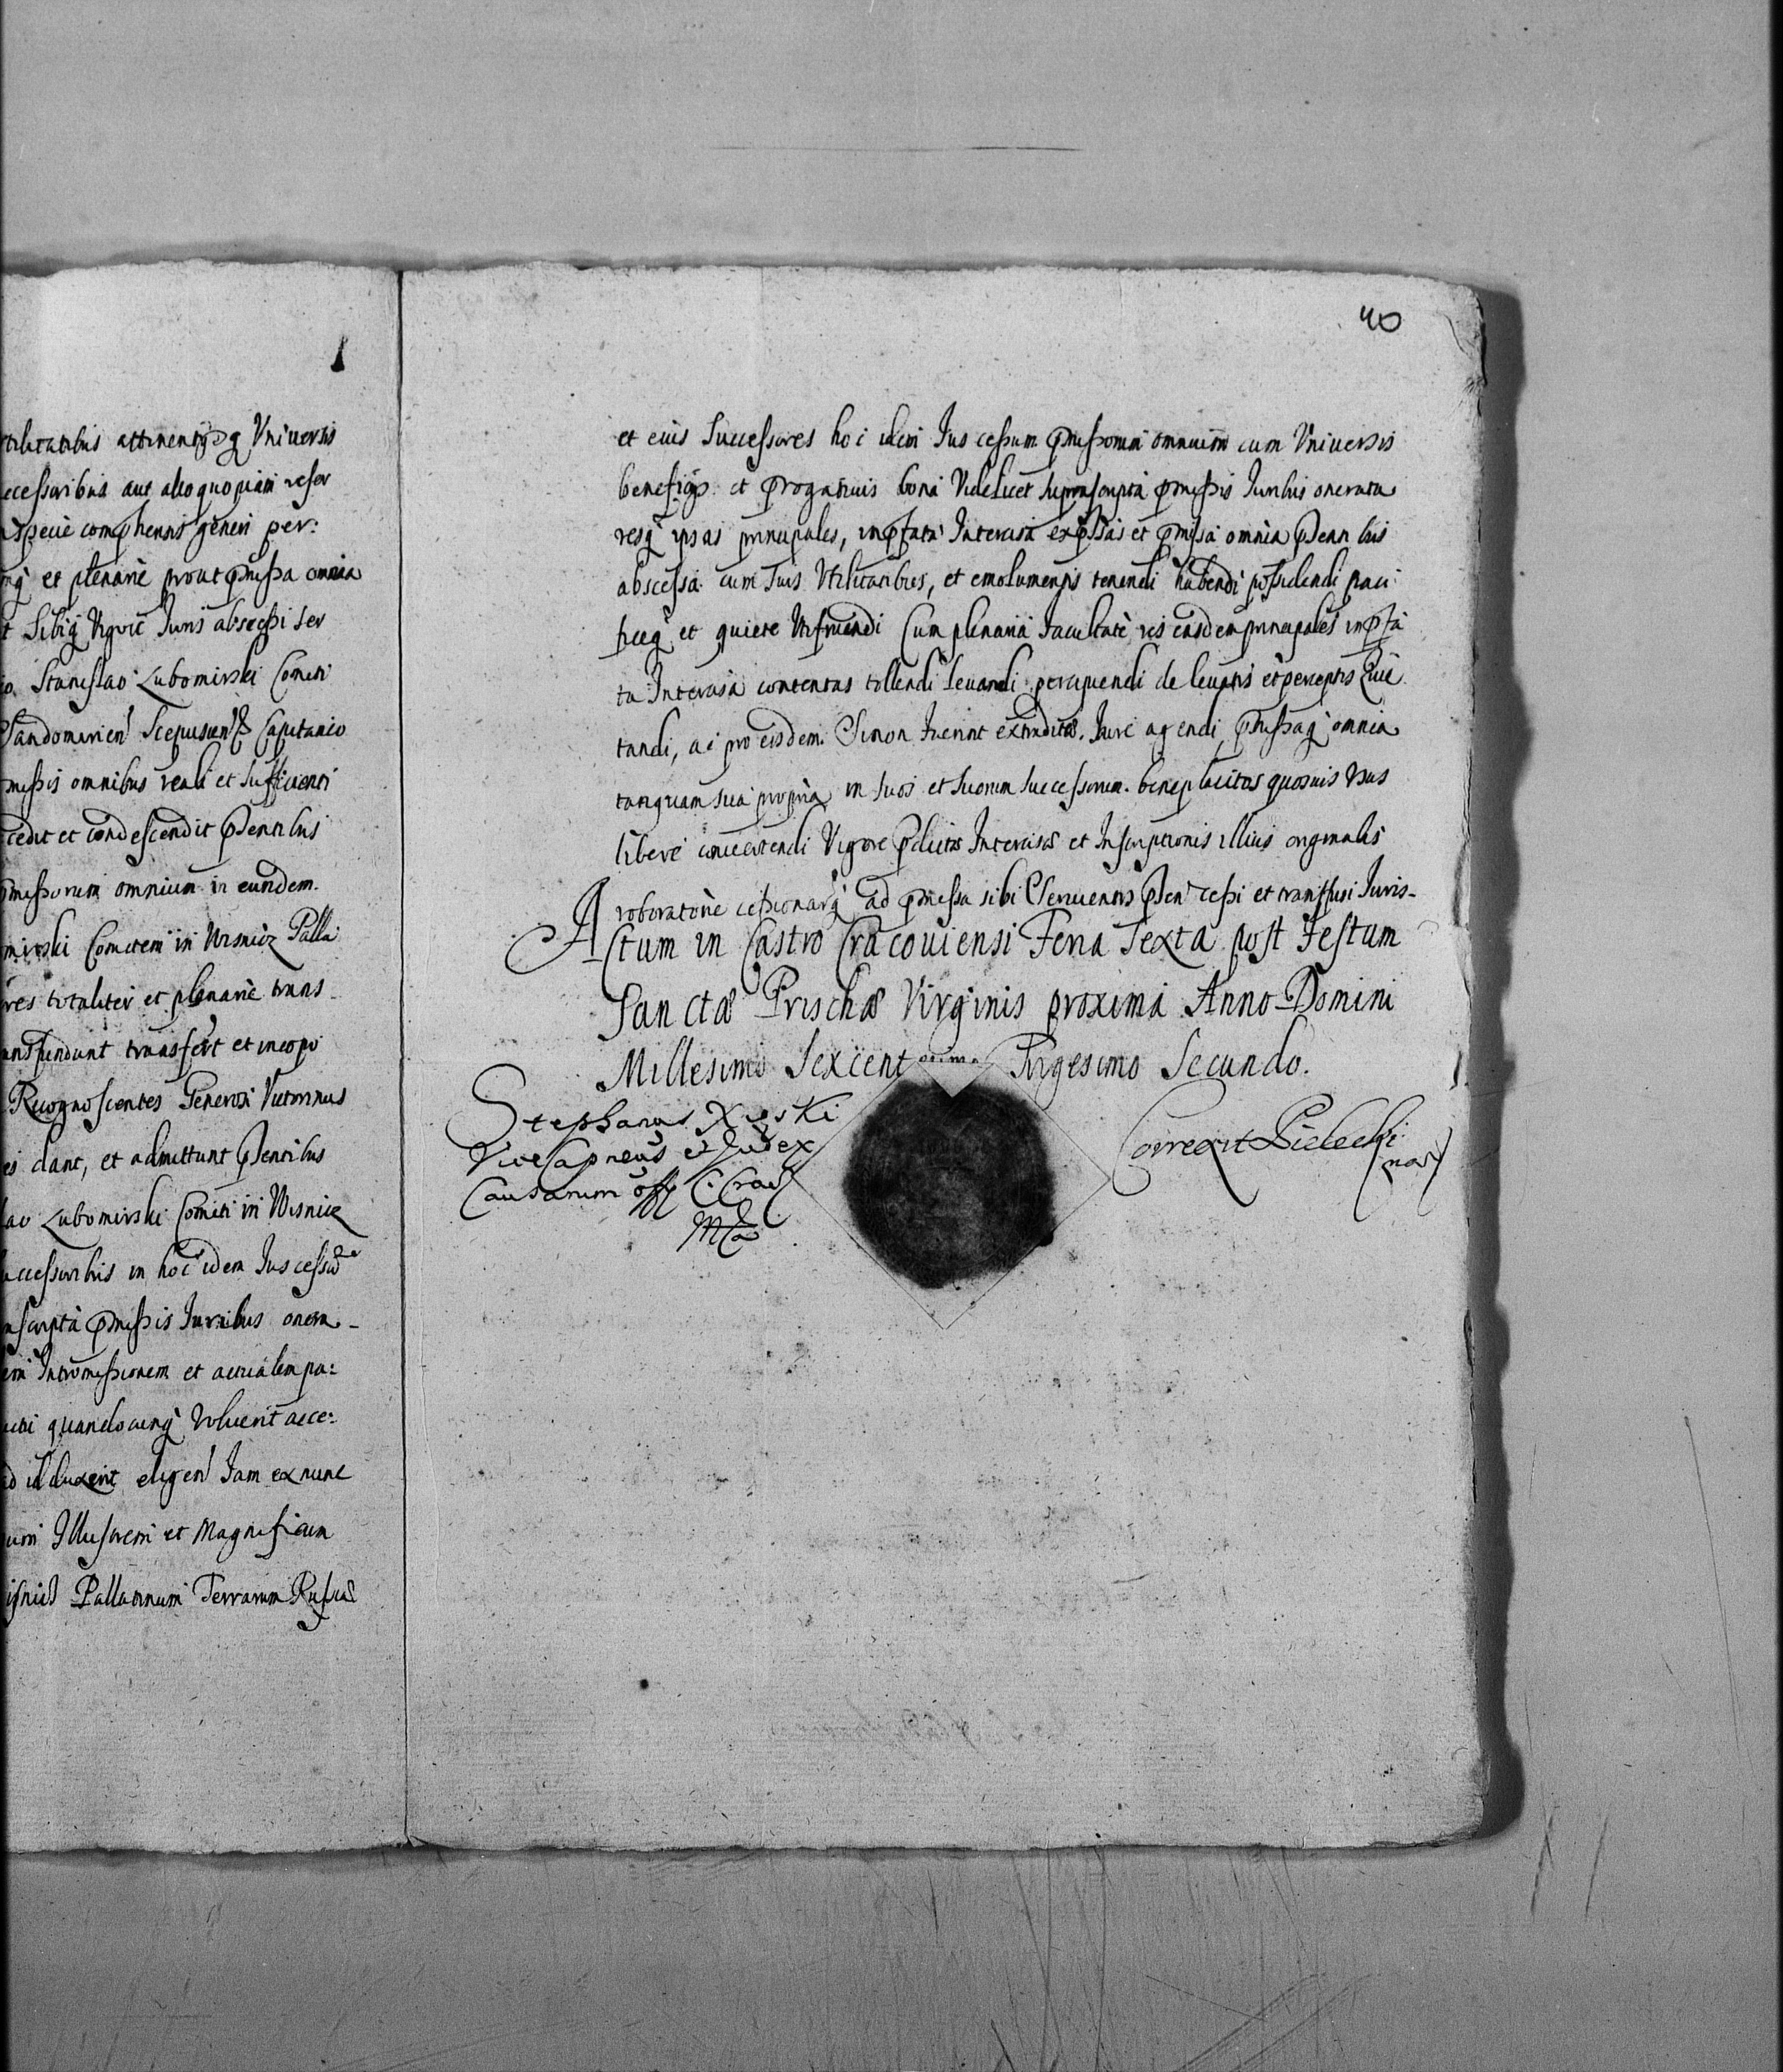 tilitatibus attinentijsq Vniuersis
ccessoribus aut alio quopiam reser
specie comphensis generi per:
et plenarie prout pmissa omnia
Sibiq Vigore Iuris abscessi ser
Stanislao Lubomirski Comiti
Sandomirien Scepusien & Capitaneo
missis omnibus reali et sufficienti
cedit et condescendit psentibus
pmissorum omnium in eundem
mirski Comitem in Wisnicz Palla
res totaliter et plenarie trans
ansfundunt transfert et incopo
Recognoscentes Generosi Victorinus
dant, et admittunt psentibus
Lubomirski Comiti in Wisnicz
uccessoribus in hoc idem Ius cessum
nscripta pmissis Iuribus onera
Intromissionem et actualem po:
quandocunq Voluerit acce:
id duxerit eligen Iam ex nunc
Illustrem et Magnificum
Pallatinum Terrarum Russiae
40
et eius Successores hoc idem Ius cessum pmissorum omnium cum Vniuersis
beneficijs et progatiuis bona Videlicet suprascripta pmissis Iuribus onerata
resq ipsas principales, in pfata Intercisa expssas et pmissa omnia psentibus
abscessa cum suis Vtilitatibus, et emolumentis tenendi habendi possidendi paci
ficeq et quiete Vtifruendi Cum plenaria facultate res easdem principales in pfa
ta Intercisa contentas tollendi leuandi percipiendi de leuatis et perceptis Quie
tandi, ac pro eisdem Si non fuerint extraditae. Iure agendi pmissaq omnia
tanquam sua propria in suos et suorum successorum beneplacitos quosuis Vsus
libere conuertendi Vigore pdictae Intercisae et Inscriptionis illius originalis
roboratorie cessionarq ad pmissa sibi seruientis psen cessi et transfusi Iuris
Actum in Castro Cracouiensi Feria Sexta post Festum
Sanctae Prischae Virginis proxima Anno Domini
Millesimo Sexcentesimo Trigesimo Secundo.
Stephanus
ViceCapneus et Iudex
Causarum off C Crac
Correxit Pielecki